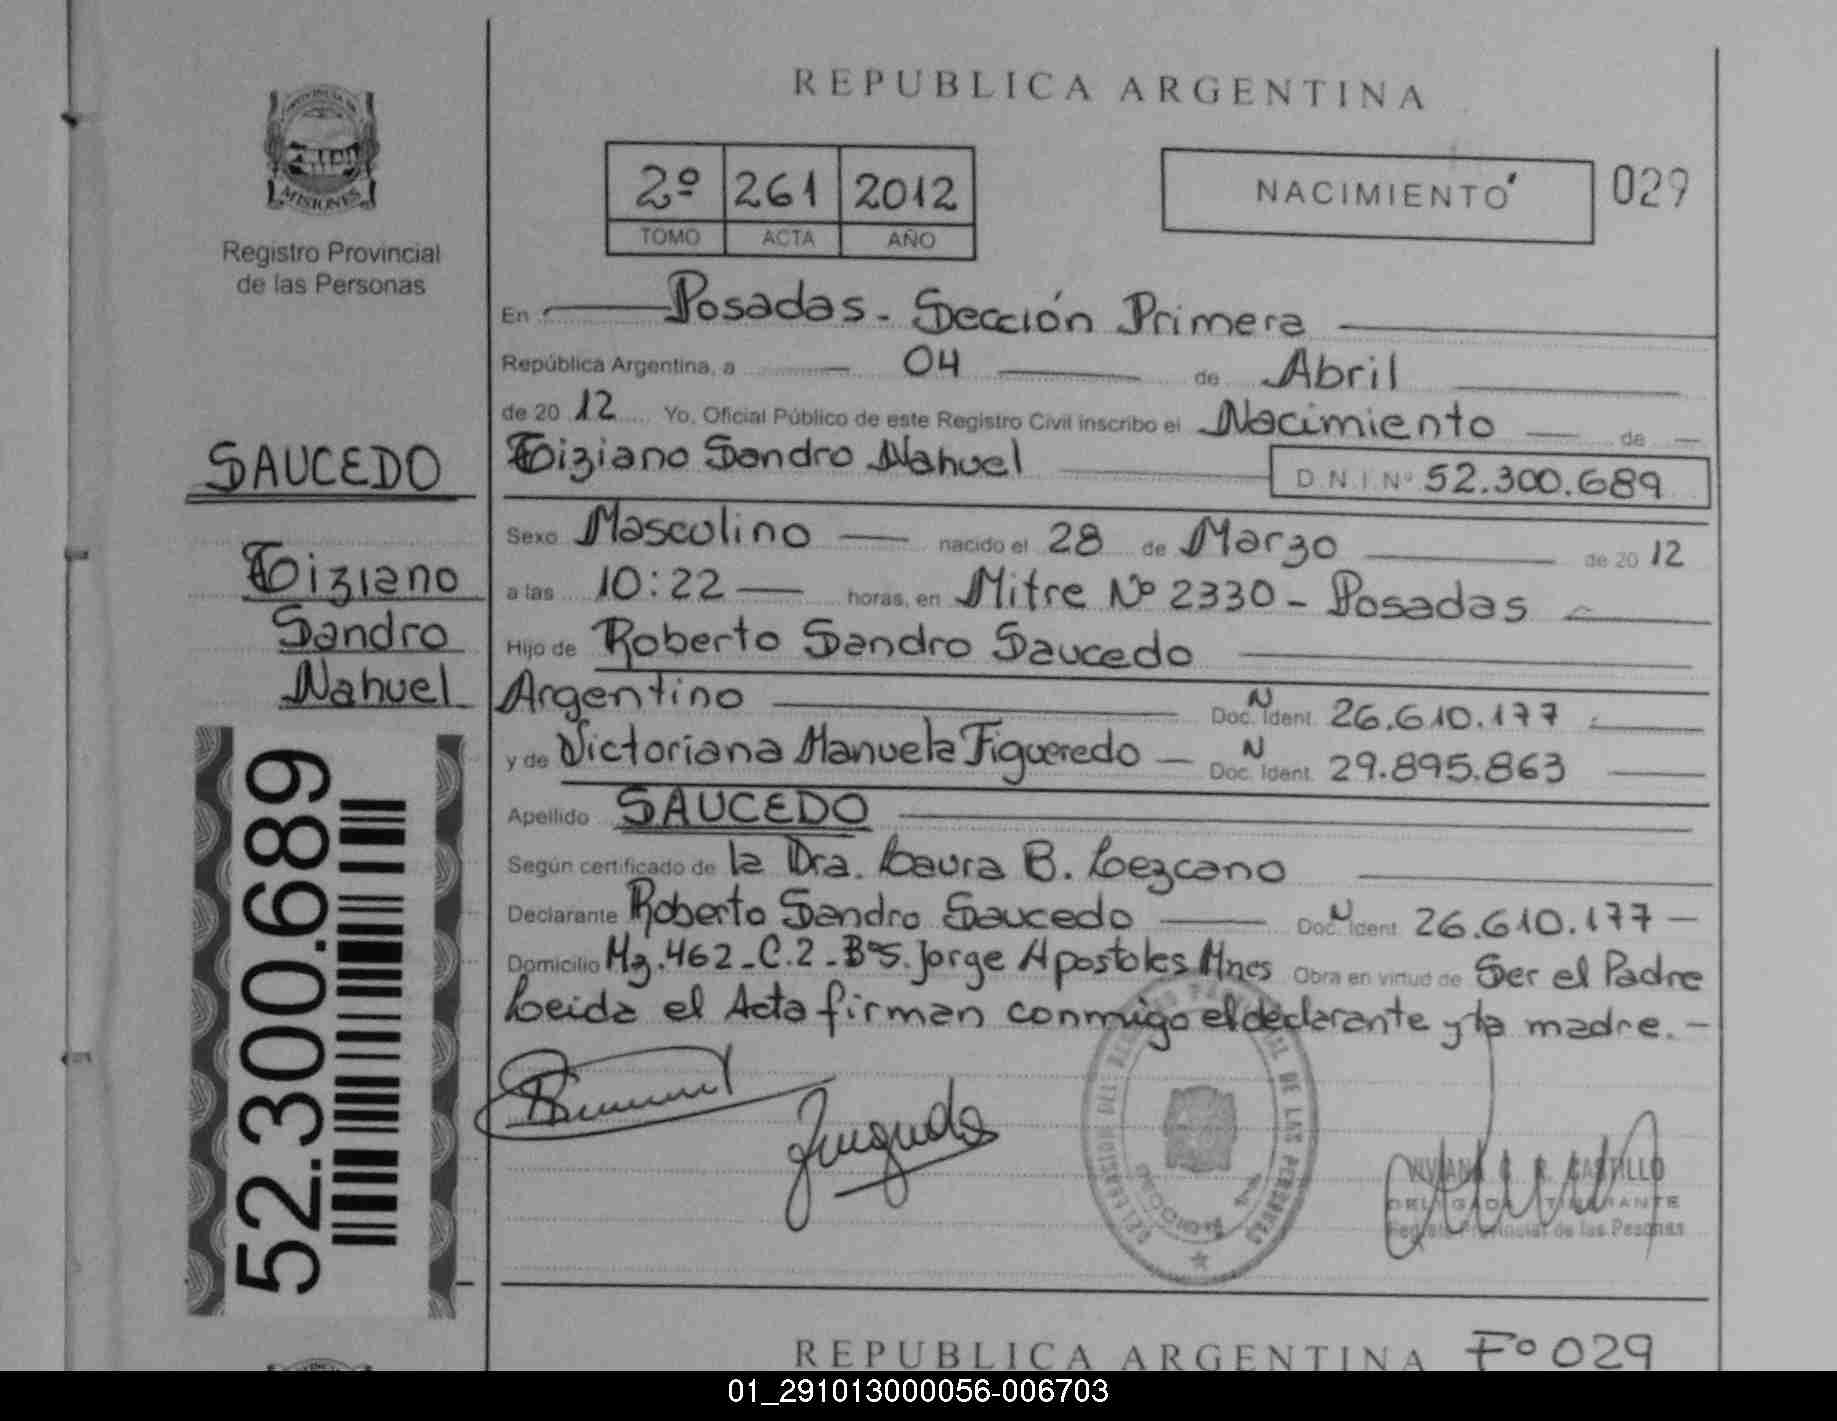 REPUBLICA ARGENTINA
MISIONES
Registro Provincial
de las Personas
2º 261 2012
TOMO ACTA AÑO
NACIMIENTO
029
En Posadas - Sección Primera
República Argentina, a 04 de Abril
de 20 12 Yo, Oficial Público de este Registro Civil inscribo el Nacimiento de
SAUCEDO
Tiziano Sandro Nahuel
D.N.I. Nº 52.300.689
Sexo Masculino nacido el 28 de Marzo de 20 12
Tiziano
Sandro
Nahuel
a las 10:22 horas, en Mitre Nº 2330 - Posadas
Hijo de Roberto Sandro Saucedo
Argentino N Doc. Ident. 26.610.177
y de Victoriana Manuela Figueredo N Doc. Ident. 29.895.863
Apellido SAUCEDO
Según certificado de la Dra. Laura B. Lezcano
Declarante Roberto Sandro Saucedo N Doc. Ident. 26.610.177
Domicilio Mz.462-C.2-BºS.Jorge Apostoles Mnes Obra en virtud de Ser el Padre
Leida el Acta firman conmigo el declarante y la madre.-
52.300.689
DELEGACION DEL REGISTRO PROVINCIAL DE LAS PERSONAS
VIVIANA CASTILLO
DELEGADA
Registro Provincial de las Personas
REPUBLICA ARGENTINA Fº 029
01_291013000056-006703